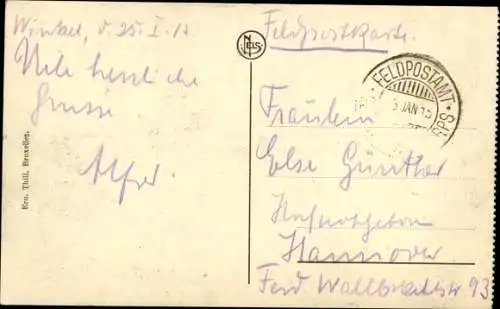 Winkel, d. 25. I. 15
Viele herzliche
Grüsse
Alfred
Ern. Thill, Bruxelles.
NELS
Feldpostkarte.
FELDPOSTAMT
JAN 15
Fräulein
Else Günther
Hannover
Ferd. Wallbrechtstr 93